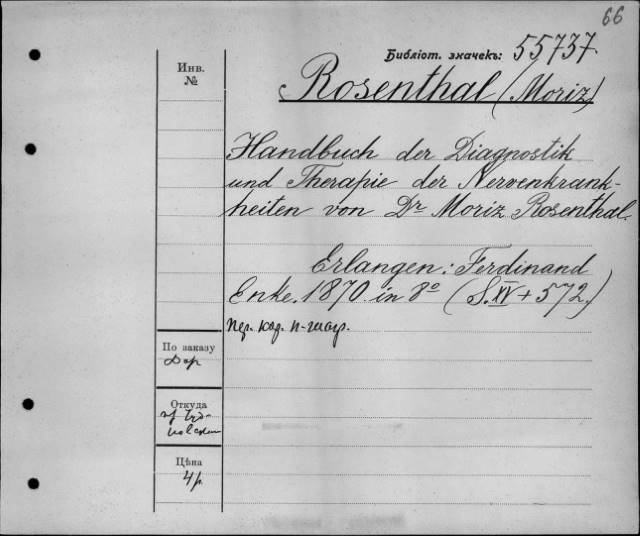 66
Библіот. значекъ: 55737.
Инв.
№
Rosenthal (Moriz)
Handbuch der Diagnostik
und Therapie der Nervenkrank-
heiten von Dr Moriz Rosenthal.
Erlangen: Ferdinand
Enke. 1870. in 8º (S. XV + 572.)
пер. кор.
По заказу
Дар
Откуда
Цѣна
4р